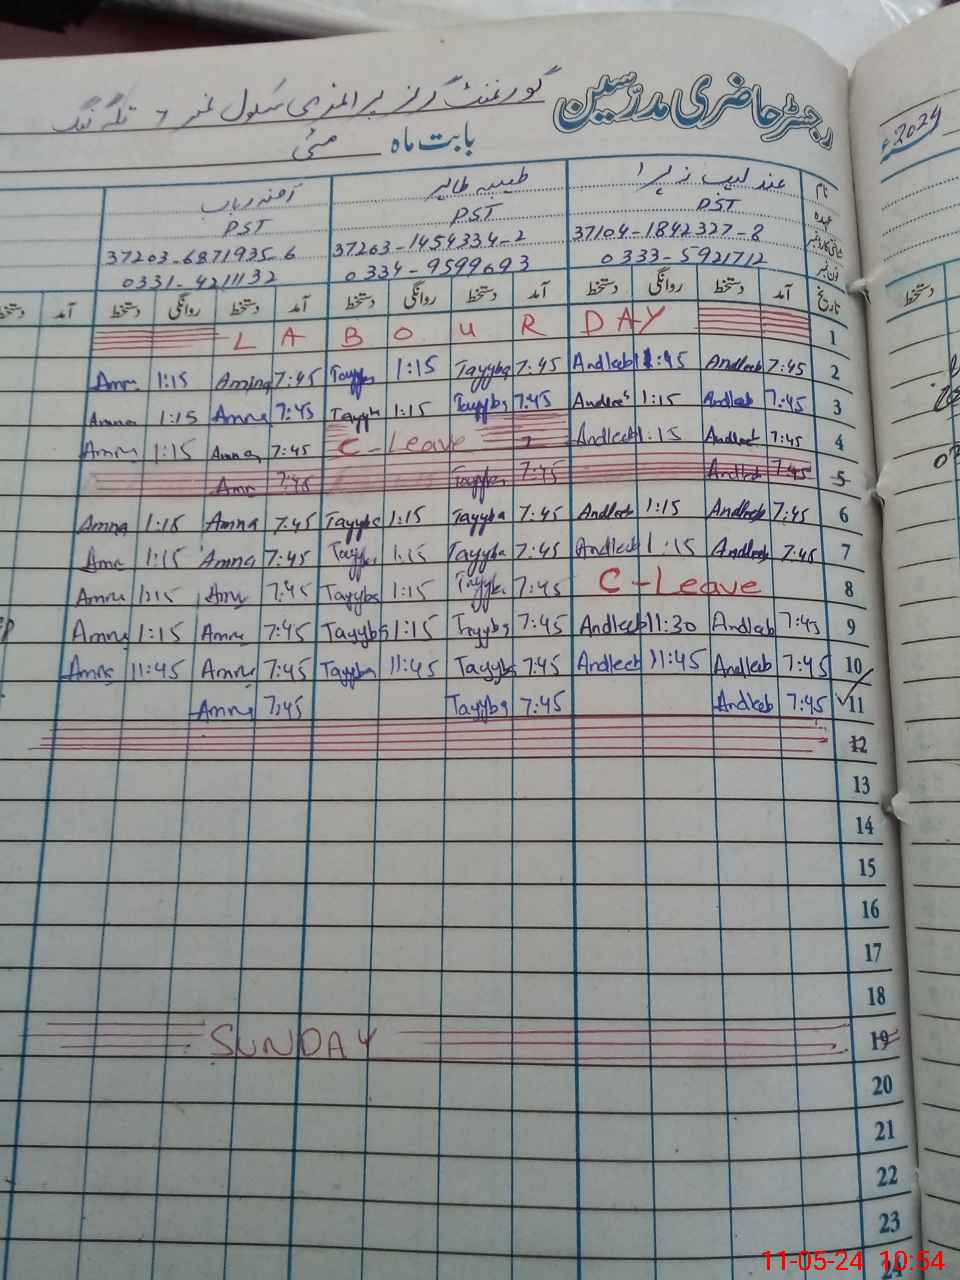 رجسٹر حاضری مدرسین گورنمنٹ گرلز پرائمری سکول نمبر 7 تلہ گنگ
بابت ماہ مئی 2024ء
نام عندلیب زہرا طیبہ طاہر آمنہ رباب
عہدہ PST PST PST
شناختی کارڈ نمبر 37104-1842327-8 37203-1454334-2 37203-6871935-6
فون نمبر 0333-5921712 0334-9599693 0331-4211132
تاریخ آمد دستخط روانگی دستخط آمد دستخط روانگی دستخط آمد دستخط روانگی دستخط آمد دستخط
1 LABOUR DAY
2 7:45 Andleeb 1:45 Andleeb 7:45 Tayyba 1:15 Tayyba 7:45 Amina 1:15 Amn
3 7:45 Andleeb 1:15 Andlee 7:45 Tayyba 1:15 Tayyba 7:45 Amna 1:15 Amna
4 7:45 Andleeb 1:15 Andleeb C-Leave 7:45 Amna 1:15 Amna
5 7:45 Andleeb 7:45 Tayyba 7:45 Amn
6 7:45 Andleeb 1:15 Andleeb 7:45 Tayyba 1:15 Tayyba 7:45 Amna 1:15 Amna
7 7:45 Andleeb 1:15 Andleeb 7:45 Tayyba 1:15 Tayyba 7:45 Amna 1:15 Amn
8 C-Leave 7:45 Tayyba 1:15 Tayyba 7:45 Amn 1:15 Amna
9 7:45 Andleeb 11:30 Andleeb 7:45 Tayyba 1:15 Tayyba 7:45 Amna 1:15 Amna
10 7:45 Andleeb 11:45 Andleeb 7:45 Tayyba 11:45 Tayyba 7:45 Amna 11:45 Amna
11 7:45 Andleeb 7:45 Tayyba 7:45 Amna
12
13
14
15
16
17
18
19 SUNDAY
20
21
22
23
24
11-05-24 10:54